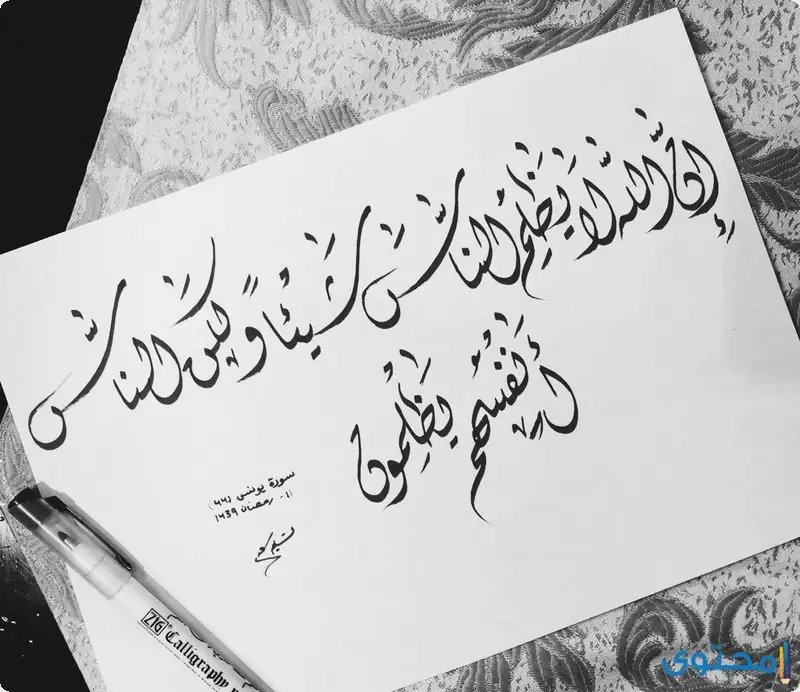 إِنَّ اللَّهَ لَا يَظْلِمُ النَّاسَ شَيْئًا وَلَكِنَّ النَّاسَ
أَنْفُسَهُمْ يَظْلِمُونَ
سورة يونس (٤٤)
١١- رمضان ١٤٣٩
ZIG Calligraphy
محتوى